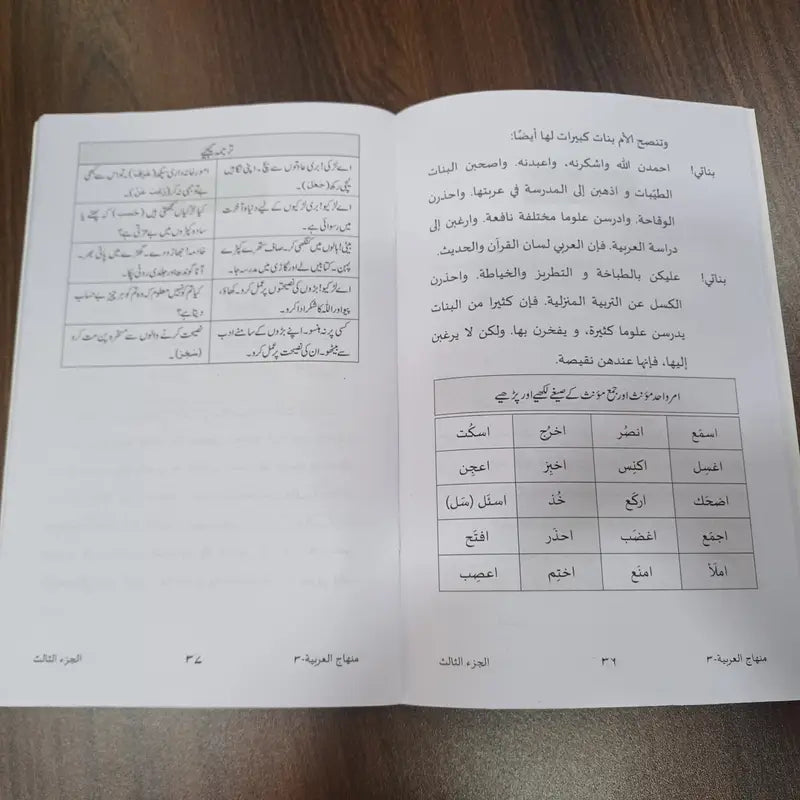 وتنصح الأم بنات كبيرات لها أيضًا:
بناتي! احمدن الله واشكرنه، واعبدنه. واصحبن البنات
الطيّبات و اذهبن إلى المدرسة في عربتها. واحذرن
الوقاحة. وادرسن علوما مختلفة نافعة. وارغبن إلى
دراسة العربية. فإن العربي لسان القرآن والحديث.
بناتي! عليكن بالطباخة و التطريز والخياطة. واحذرن
الكسل عن التربية المنزلية. فإن كثيرا من البنات
يدرسن علوما كثيرة، و يفخرن بها. ولكن لا يرغبن
إليها، فإنها عندهن نقيصة.
امر واحد مؤنث اور جمع مؤنث کے صیغے لکھیے اور پڑھیے
اسمَع انصُر اخرُج اسكُت
اغسِل اكنِس اخبِز اعجِن
اضحَك اركَع خُذ اسئَل (سَل)
اجمَع اغضَب احذَر افتَح
املَأ امنَع اختِم اعصِب
منهاج العربية-٣ ٣٦ الجزء الثالث
ترجمہ کیجیے
اے لڑکی! بری عادتوں سے بچ۔ اپنی نگاہیں
نیچی رکھ (جَعل)۔
امور خانہ داری سیکھ۔ تو اس سے کبھی
بے توجہی نہ کر (رَغِبَ عَنْ)۔
اے لڑکیو! بری لڑکیوں کے لیے دنیا و آخرت
میں رسوائی ہے۔
کیا لڑکیاں سمجھتی ہیں (حَسِب) کہ پھٹے یا
سادہ کپڑوں میں بے عزتی ہے؟
بیٹی! بالوں میں کنگھی کر۔ صاف ستھرے کپڑے
پہن۔ کتابیں لے اور گاڑی میں مدرسہ جا۔
خادمہ! جھاڑو دے۔ گھڑے میں پانی بھر۔
آٹا گوندھ اور جلدی روٹی پکا۔
اے لڑکیو! بڑوں کی نصیحتوں پر عمل کرو۔ کھاؤ،
پیو اور اللہ کا شکر ادا کرو۔
کیا تم کو نہیں معلوم کہ وہ تم کو ہر چیز بے حساب
دیتا ہے؟
کسی پر نہ ہنسو۔ اپنے بڑوں کے سامنے ادب
سے بیٹھو۔ ان کی نصیحت پر عمل کرو۔
نصیحت کرنے والوں سے مسخرہ پن مت کرو
منهاج العربية-٣ ٣٧ الجزء الثالث